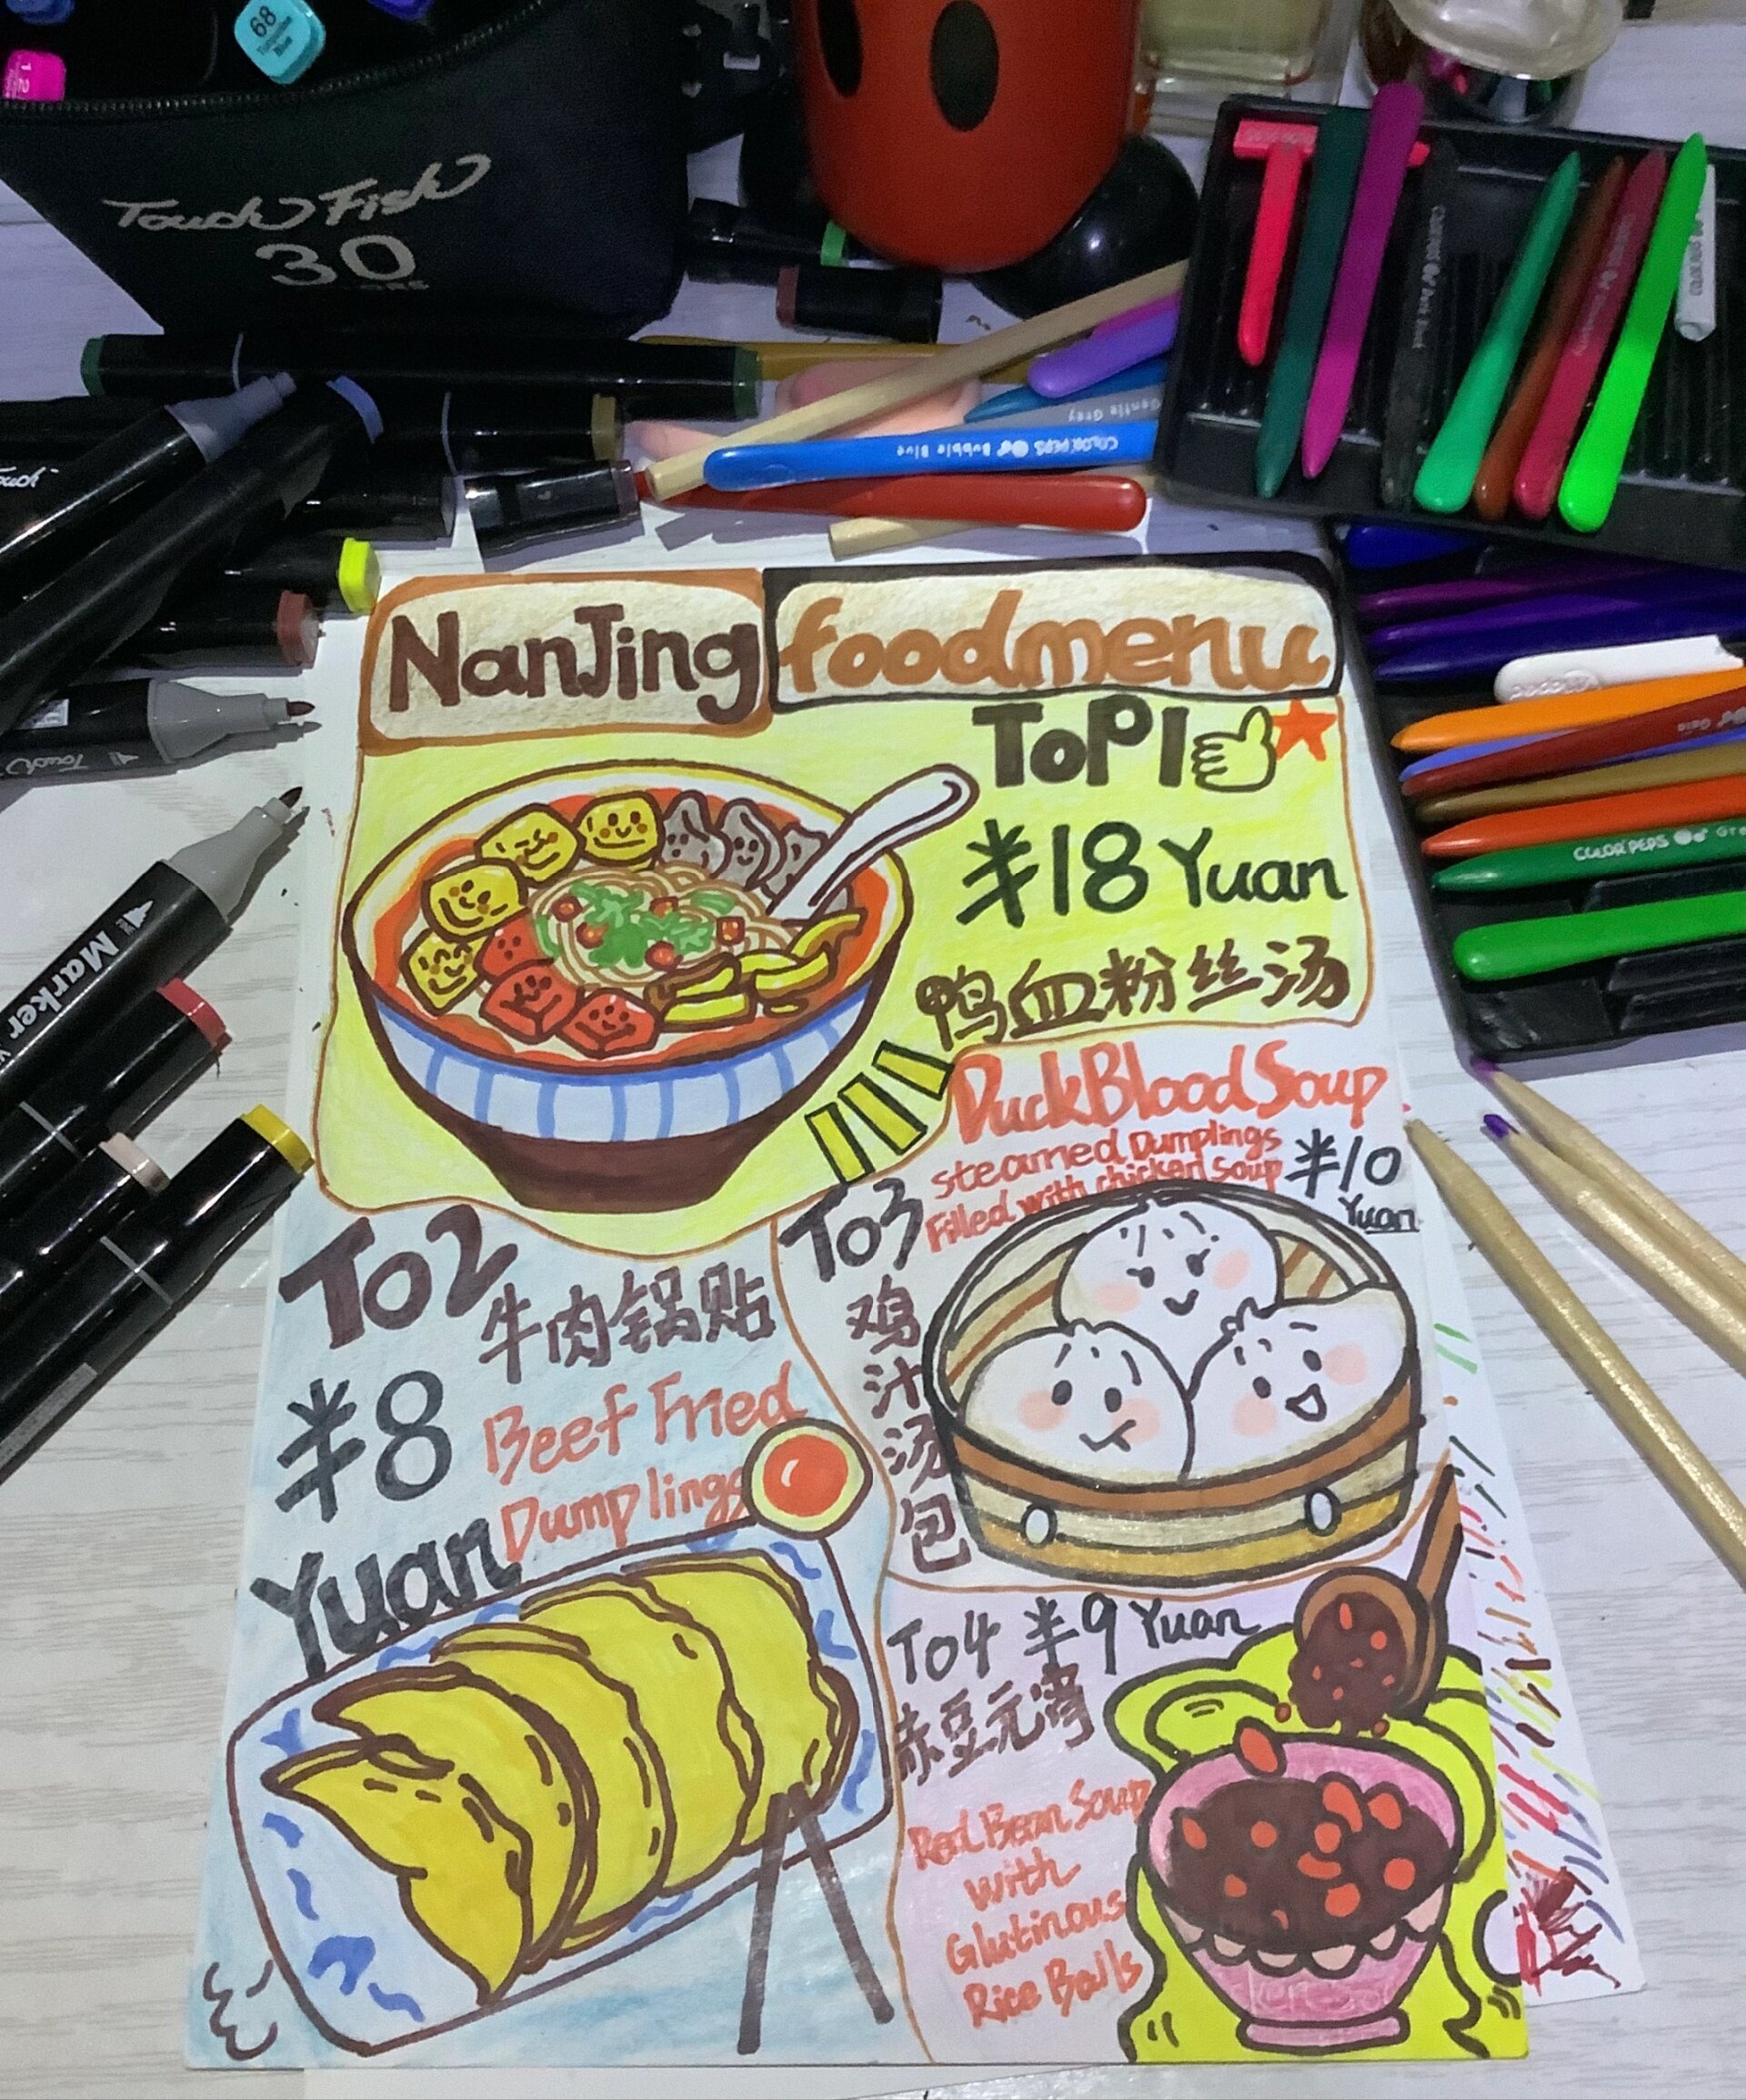 68
Turquoise
Blue
12
Touch Fish
30
Touch
Gentle Grey
COLOR'PEPS Bubble Blue
NanJing foodmenu
ToP1
¥18 Yuan
鸭血粉丝汤
DuckBloodSoup
steamed Dumplings
Filled with chicken Soup
¥10
Yuan
To3
鸡
汁
汤
包
To2
牛肉锅贴
¥8
Yuan
Beef Fried
Dumplings
To4 ¥9 Yuan
赤豆元宵
Red Bean Soup
with
Glutinous
Rice Balls
Touch
Marker
COLOR'PEPS